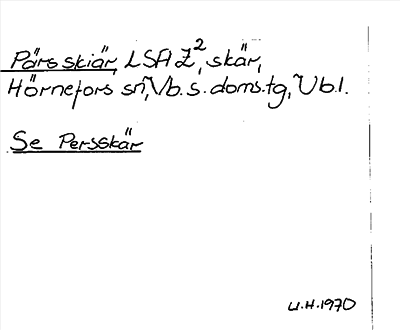 Pärsskiär, LSA Z², skär,
Hörnefors sn, Vb. s. doms.tg, Vb.l.
Se Persskär
U.H. 1970